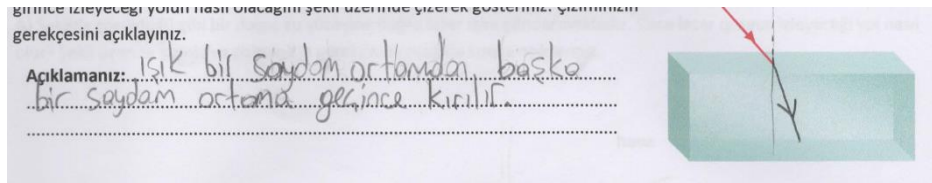 girince izleyeceği yolun nasıl olacağını şekil üzerinde çizerek gösteriniz. Çiziminizin
gerekçesini açıklayınız.
Açıklamanız: ışık bir saydam ortamdan, başka
bir saydam ortama geçince kırılır.